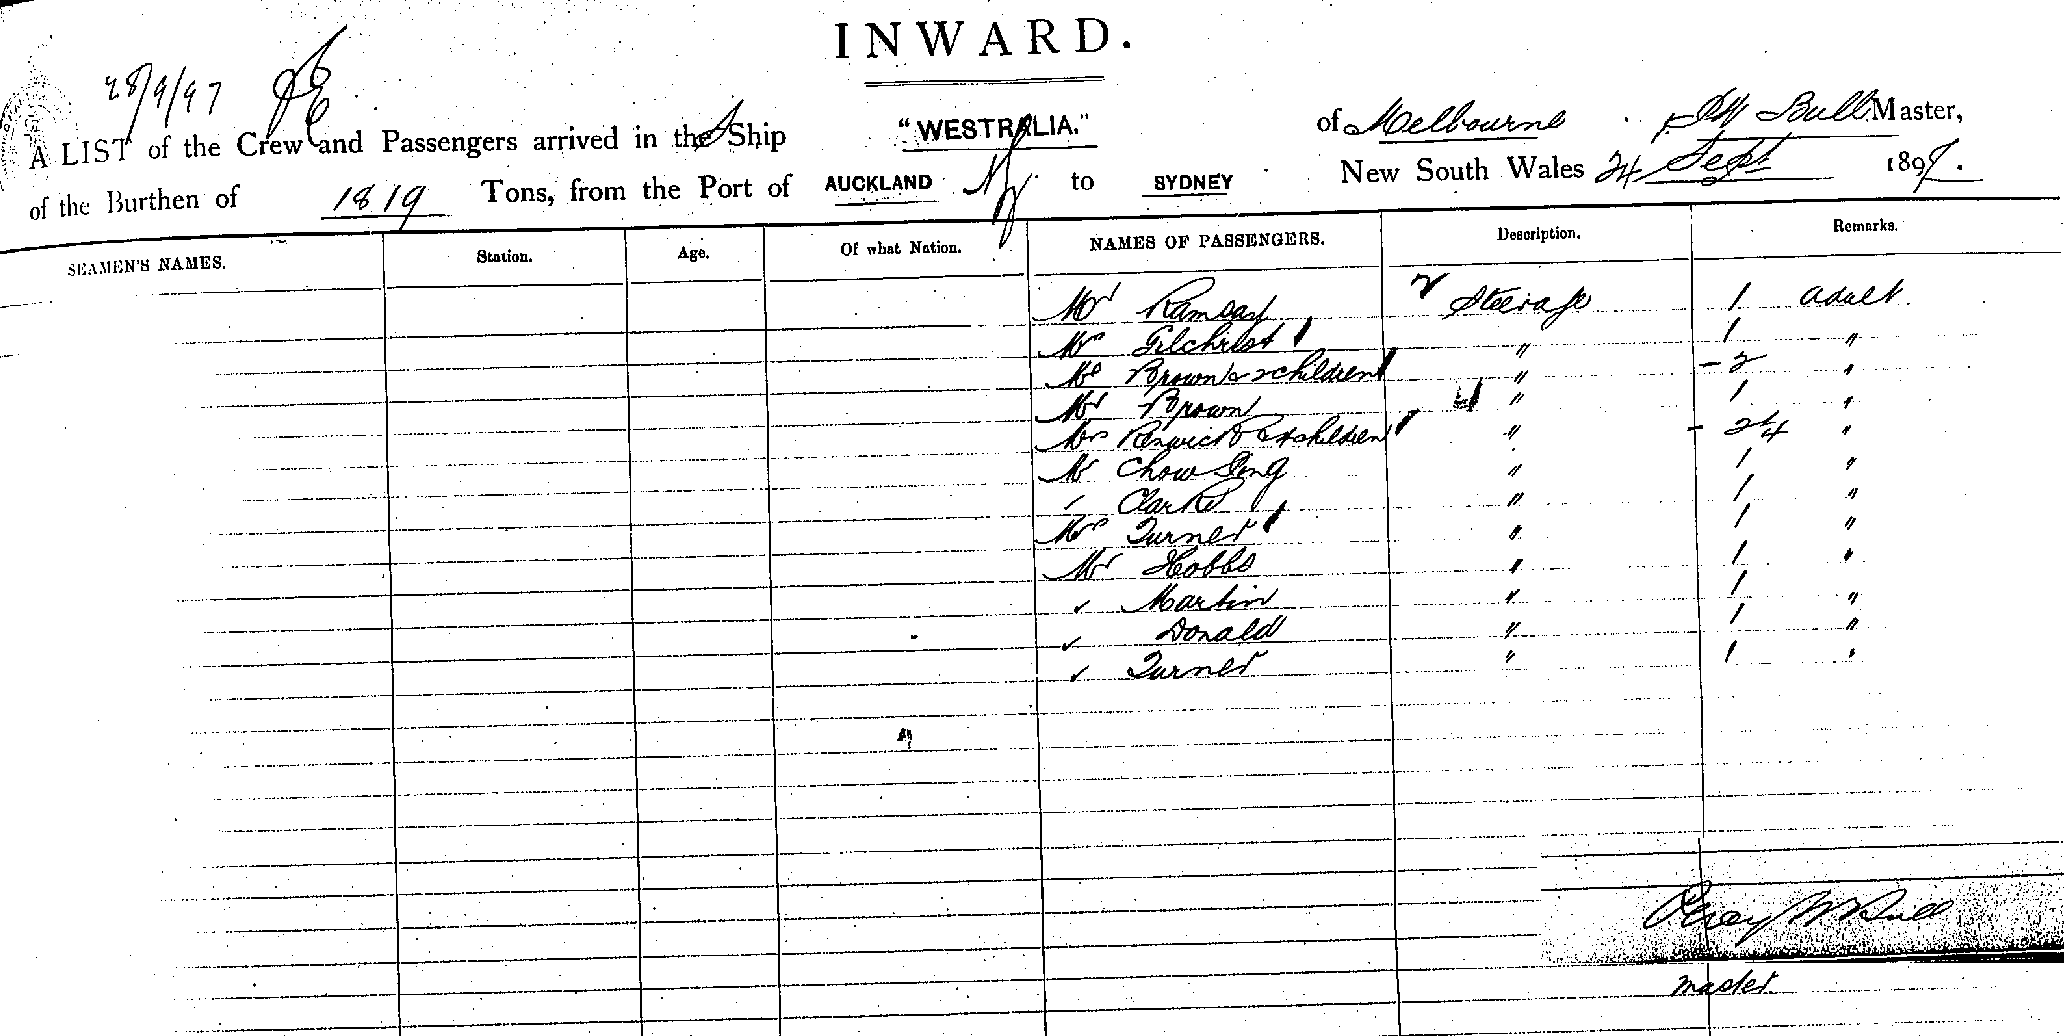 INWARD.
28/9/97
A LIST of the Crew and Passengers arrived in the S Ship "WESTRALIA." of Melbourne P W Bull Master,
of the Burthen of 1819 Tons, from the Port of AUCKLAND NZ to SYDNEY New South Wales 24 Sept 1897.
SEAMEN'S NAMES. Station. Age. Of what Nation. NAMES OF PASSENGERS. Description. Remarks.
Mr Ramsay Steerage 1 adult.
Mrs Gilchrist " 1 "
Mrs Brown & 2 children " 2 "
Mr Brown " 1 "
Mrs Renwick & 4 children " "
Mr Chow Sing " 1 "
Clarke " 1 "
Mrs Turner " 1 "
Mr Hobbs " 1 "
" Martin " 1 "
" Donald " 1 "
" Turner " 1 "
Percy W Bull
master